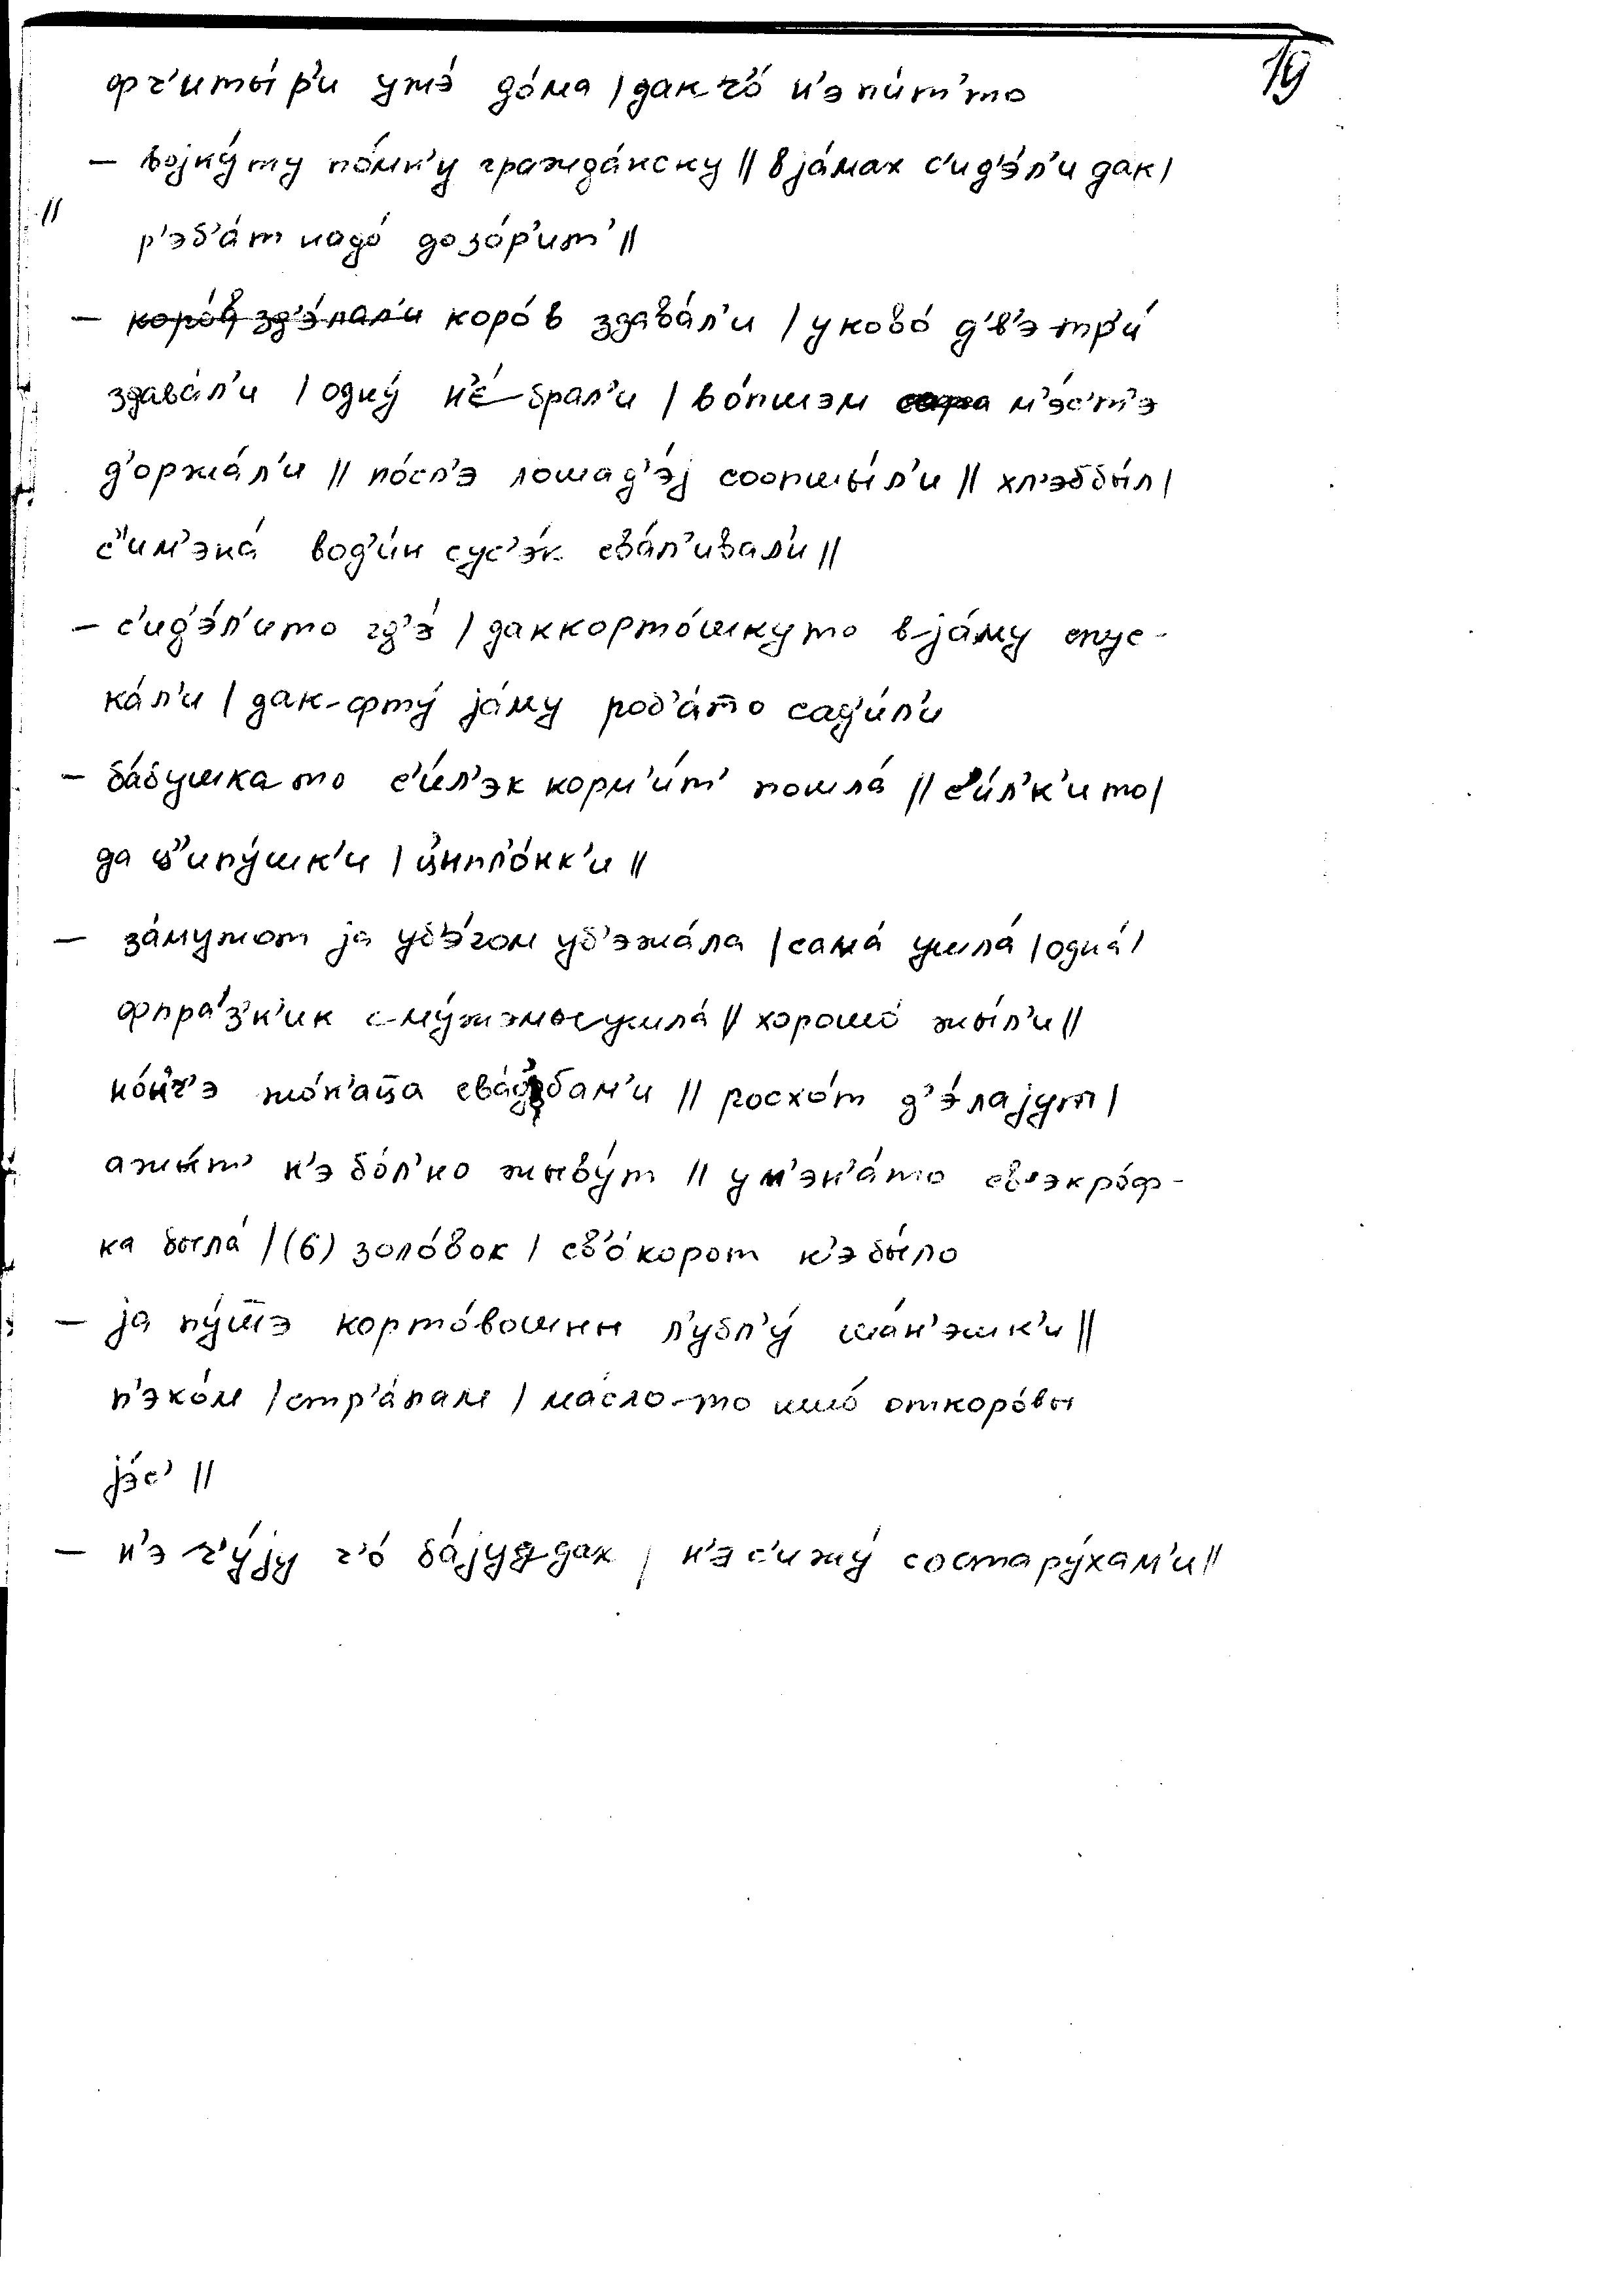 19
фч'иты́р'и ужэ́ до́ма | дак ч'о́ н'э пи́т'то
– војну́ту по́мн'у гражда́нску || в ја́мах с'ид'э́л'и дак |
//
р'эб'а́т надо́ дозо́р'ит' ||
– коро́в зд'э́лал'и коро́в здава́л'и | у ково́ д'в'э тр'и́
здава́л'и | одну́ н'е́ брал'и | во́пшэм м'э́с'т'э
д'оржа́л'и || по́сл'э лошад'э́ј соопшы́л'и || хл'эббы́л |
с''им'эна́ вод'и́н сус'э́к сва́л'ивал'и ||
– с'ид'э́л'ито гд'э́ | даккорто́шкуто в ја́му спус-
ка́л'и | дак-фту́ ја́му роб'а́то сад'и́л'и
– ба́бушка то с'и́л'эк корм'и́т' пошла́ || с'и́л'к'ито |
да ц''ипу́шк'и | цыпл'о́нк'и ||
– за́мужот ја уб'э́гом уб'эжа́ла | сама́ ушла́ | одна́ |
фпра́з'н'ик с му́жэмы ушла́ || хорошо́ жы́л'и ||
но́н'ч'э жо́н'аца сва́д'бам'и || росхо́т д'э́лајут |
ажы́т' н'э бо́л'но жыву́т || ум'эн'а́то св'экро́ф-
ка была́ | (6) золо́вок | св'о́корот н'э бы́ло
– ја пу́шшэ корто́вошны л'убл'у́ ша́н'эшк'и ||
п'эко́м | стр'а́пам | ма́сло-то ишо́ откоро́вы
јэ́с' ||
– н'э ч'у́ју ч'о́ ба́јуд дак | н'э с'ижу́ состару́хам'и ||